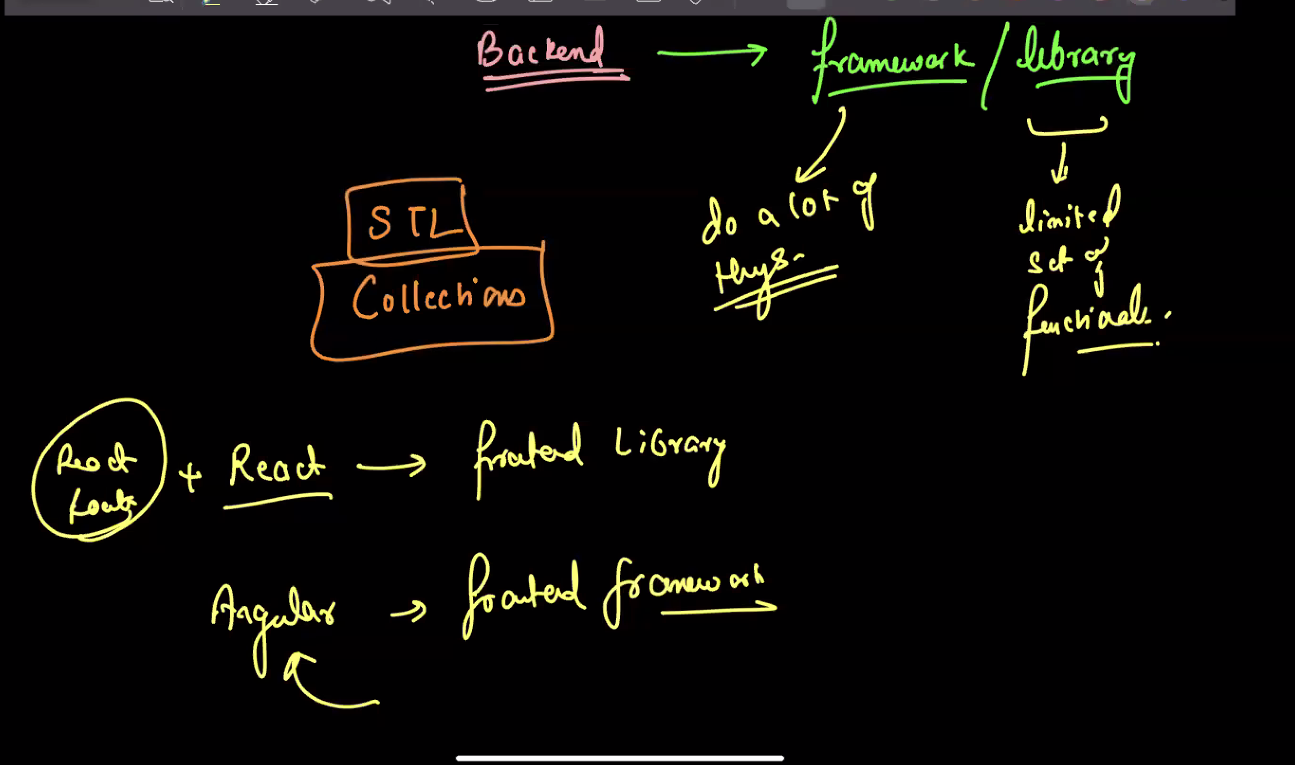 Backend → framework / library
do a lot of
thgs.
limited
set of
functionals.
STL
Collections
React
+ React → frontend Library
Angular → frontend framework